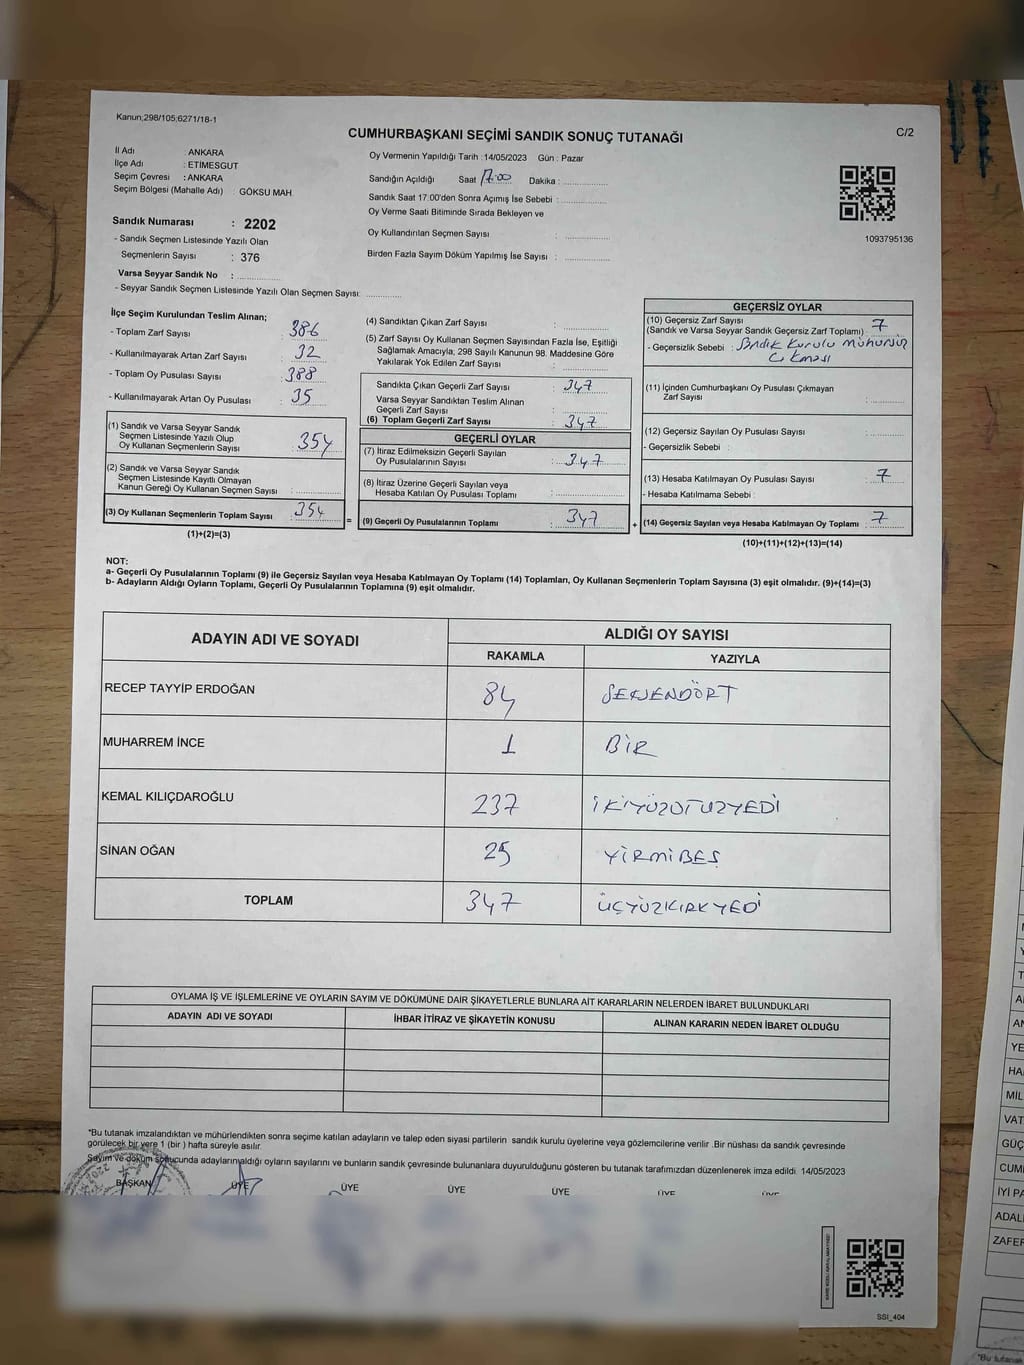 Kanun;298/105;6271/18-1
CUMHURBAŞKANI SEÇİMİ SANDIK SONUÇ TUTANAĞI
C/2
İl Adı : ANKARA
İlçe Adı : ETİMESGUT
Seçim Çevresi : ANKARA
Seçim Bölgesi (Mahalle Adı) : GÖKSU MAH.
Sandık Numarası : 2202
- Sandık Seçmen Listesinde Yazılı Olan
Seçmenlerin Sayısı : 376
Varsa Seyyar Sandık No :
- Seyyar Sandık Seçmen Listesinde Yazılı Olan Seçmen Sayısı:
Oy Vermenin Yapıldığı Tarih :14/05/2023 Gün : Pazar
Sandığın Açıldığı Saat 17:00 Dakika :
Sandık Saat 17:00'den Sonra Açımış İse Sebebi :
Oy Verme Saati Bitiminde Sırada Bekleyen ve
Oy Kullandırılan Seçmen Sayısı :
Birden Fazla Sayım Döküm Yapılmış İse Sayısı :
1093795136
İlçe Seçim Kurulundan Teslim Alınan;
- Toplam Zarf Sayısı : 386
- Kullanılmayarak Artan Zarf Sayısı : 32
- Toplam Oy Pusulası Sayısı : 388
- Kullanılmayarak Artan Oy Pusulası : 35
(1) Sandık ve Varsa Seyyar Sandık
Seçmen Listesinde Yazılı Olup
Oy Kullanan Seçmenlerin Sayısı : 354
(2) Sandık ve Varsa Seyyar Sandık
Seçmen Listesinde Kayıtlı Olmayan
Kanun Gereği Oy Kullanan Seçmen Sayısı :
(3) Oy Kullanan Seçmenlerin Toplam Sayısı : 354
(1)+(2)=(3)
(4) Sandıktan Çıkan Zarf Sayısı :
(5) Zarf Sayısı Oy Kullanan Seçmen Sayısından Fazla İse, Eşitliği
Sağlamak Amacıyla, 298 Sayılı Kanunun 98. Maddesine Göre
Yakılarak Yok Edilen Zarf Sayısı :
Sandıkta Çıkan Geçerli Zarf Sayısı : 347
Varsa Seyyar Sandıktan Teslim Alınan
Geçerli Zarf Sayısı :
(6) Toplam Geçerli Zarf Sayısı : 347
GEÇERLİ OYLAR
(7) İtiraz Edilmeksizin Geçerli Sayılan
Oy Pusulalarının Sayısı : 347
(8) İtiraz Üzerine Geçerli Sayılan veya
Hesaba Katılan Oy Pusulası Toplamı :
= (9) Geçerli Oy Pusulalarının Toplamı : 347
GEÇERSİZ OYLAR
(10) Geçersiz Zarf Sayısı
(Sandık ve Varsa Seyyar Sandık Geçersiz Zarf Toplamı) : 7
- Geçersizlik Sebebi : Sandık Kurulu Mühürsüz
Çıkması
(11) İçinden Cumhurbaşkanı Oy Pusulası Çıkmayan
Zarf Sayısı :
(12) Geçersiz Sayılan Oy Pusulası Sayısı :
- Geçersizlik Sebebi :
(13) Hesaba Katılmayan Oy Pusulası Sayısı : 7
- Hesaba Katılmama Sebebi :
+ (14) Geçersiz Sayılan veya Hesaba Katılmayan Oy Toplamı : 7
(10)+(11)+(12)+(13)=(14)
NOT:
a- Geçerli Oy Pusulalarının Toplamı (9) ile Geçersiz Sayılan veya Hesaba Katılmayan Oy Toplamı (14) Toplamları, Oy Kullanan Seçmenlerin Toplam Sayısına (3) eşit olmalıdır. (9)+(14)=(3)
b- Adayların Aldığı Oyların Toplamı, Geçerli Oy Pusulalarının Toplamına (9) eşit olmalıdır.
ADAYIN ADI VE SOYADI
ALDIĞI OY SAYISI
RAKAMLA YAZIYLA
RECEP TAYYİP ERDOĞAN 84 SEKSENDÖRT
MUHARREM İNCE 1 BİR
KEMAL KILIÇDAROĞLU 237 İKİYÜZOTUZYEDİ
SİNAN OĞAN 25 YİRMİBEŞ
TOPLAM 347 ÜÇYÜZKIRKYEDİ
OYLAMA İŞ VE İŞLEMLERİNE VE OYLARIN SAYIM VE DÖKÜMÜNE DAİR ŞİKAYETLERLE BUNLARA AİT KARARLARIN NELERDEN İBARET BULUNDUKLARI
ADAYIN ADI VE SOYADI İHBAR İTİRAZ VE ŞİKAYETİN KONUSU ALINAN KARARIN NEDEN İBARET OLDUĞU
*Bu tutanak imzalandıktan ve mühürlendikten sonra seçime katılan adayların ve talep eden siyasi partilerin sandık kurulu üyelerine veya gözlemcilerine verilir .Bir nüshası da sandık çevresinde
görülecek bir yere 1 (bir ) hafta süreyle asılır.
Sayım ve döküm sonucunda adayların aldığı oyların sayılarını ve bunların sandık çevresinde bulunanlara duyurulduğunu gösteren bu tutanak tarafımızdan düzenlenerek imza edildi. 14/05/2023
BAŞKAN ÜYE ÜYE ÜYE ÜYE ÜYE ÜYE
SSI_404
YE
HA
MİL
VAT
GÜÇ
CUM
İYİ PA
ADAL
ZAFER
*Bu tutanak